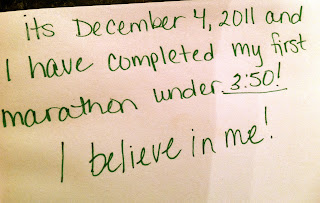 its December 4, 2011 and
I have completed my first
marathon under 3:50!
I believe in me!